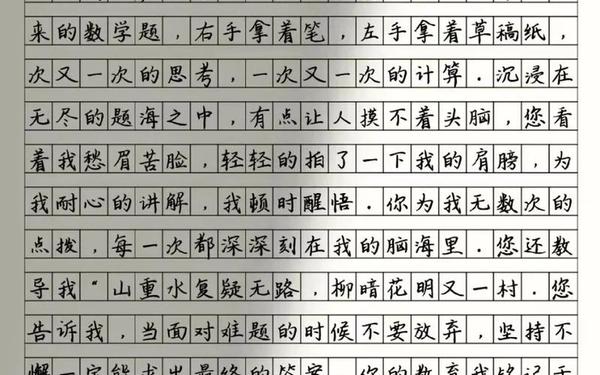 来的数学题，右手拿着笔，左手拿着草稿纸，
次又一次的思考，一次又一次的计算.沉浸在
无尽的题海之中，有点让人摸不着头脑，您看
着我愁眉苦脸，轻轻的拍了一下我的肩膀，为
我耐心的讲解，我顿时醒悟.你为我无数次的
点拨，每一次都深深刻在我的脑海里.您还教
导我“山重水复疑无路，柳暗花明又一村.您
告诉我，当面对难题的时候不要放弃，坚持不
懈一定能求出最终的答案.你的教育我铭记于